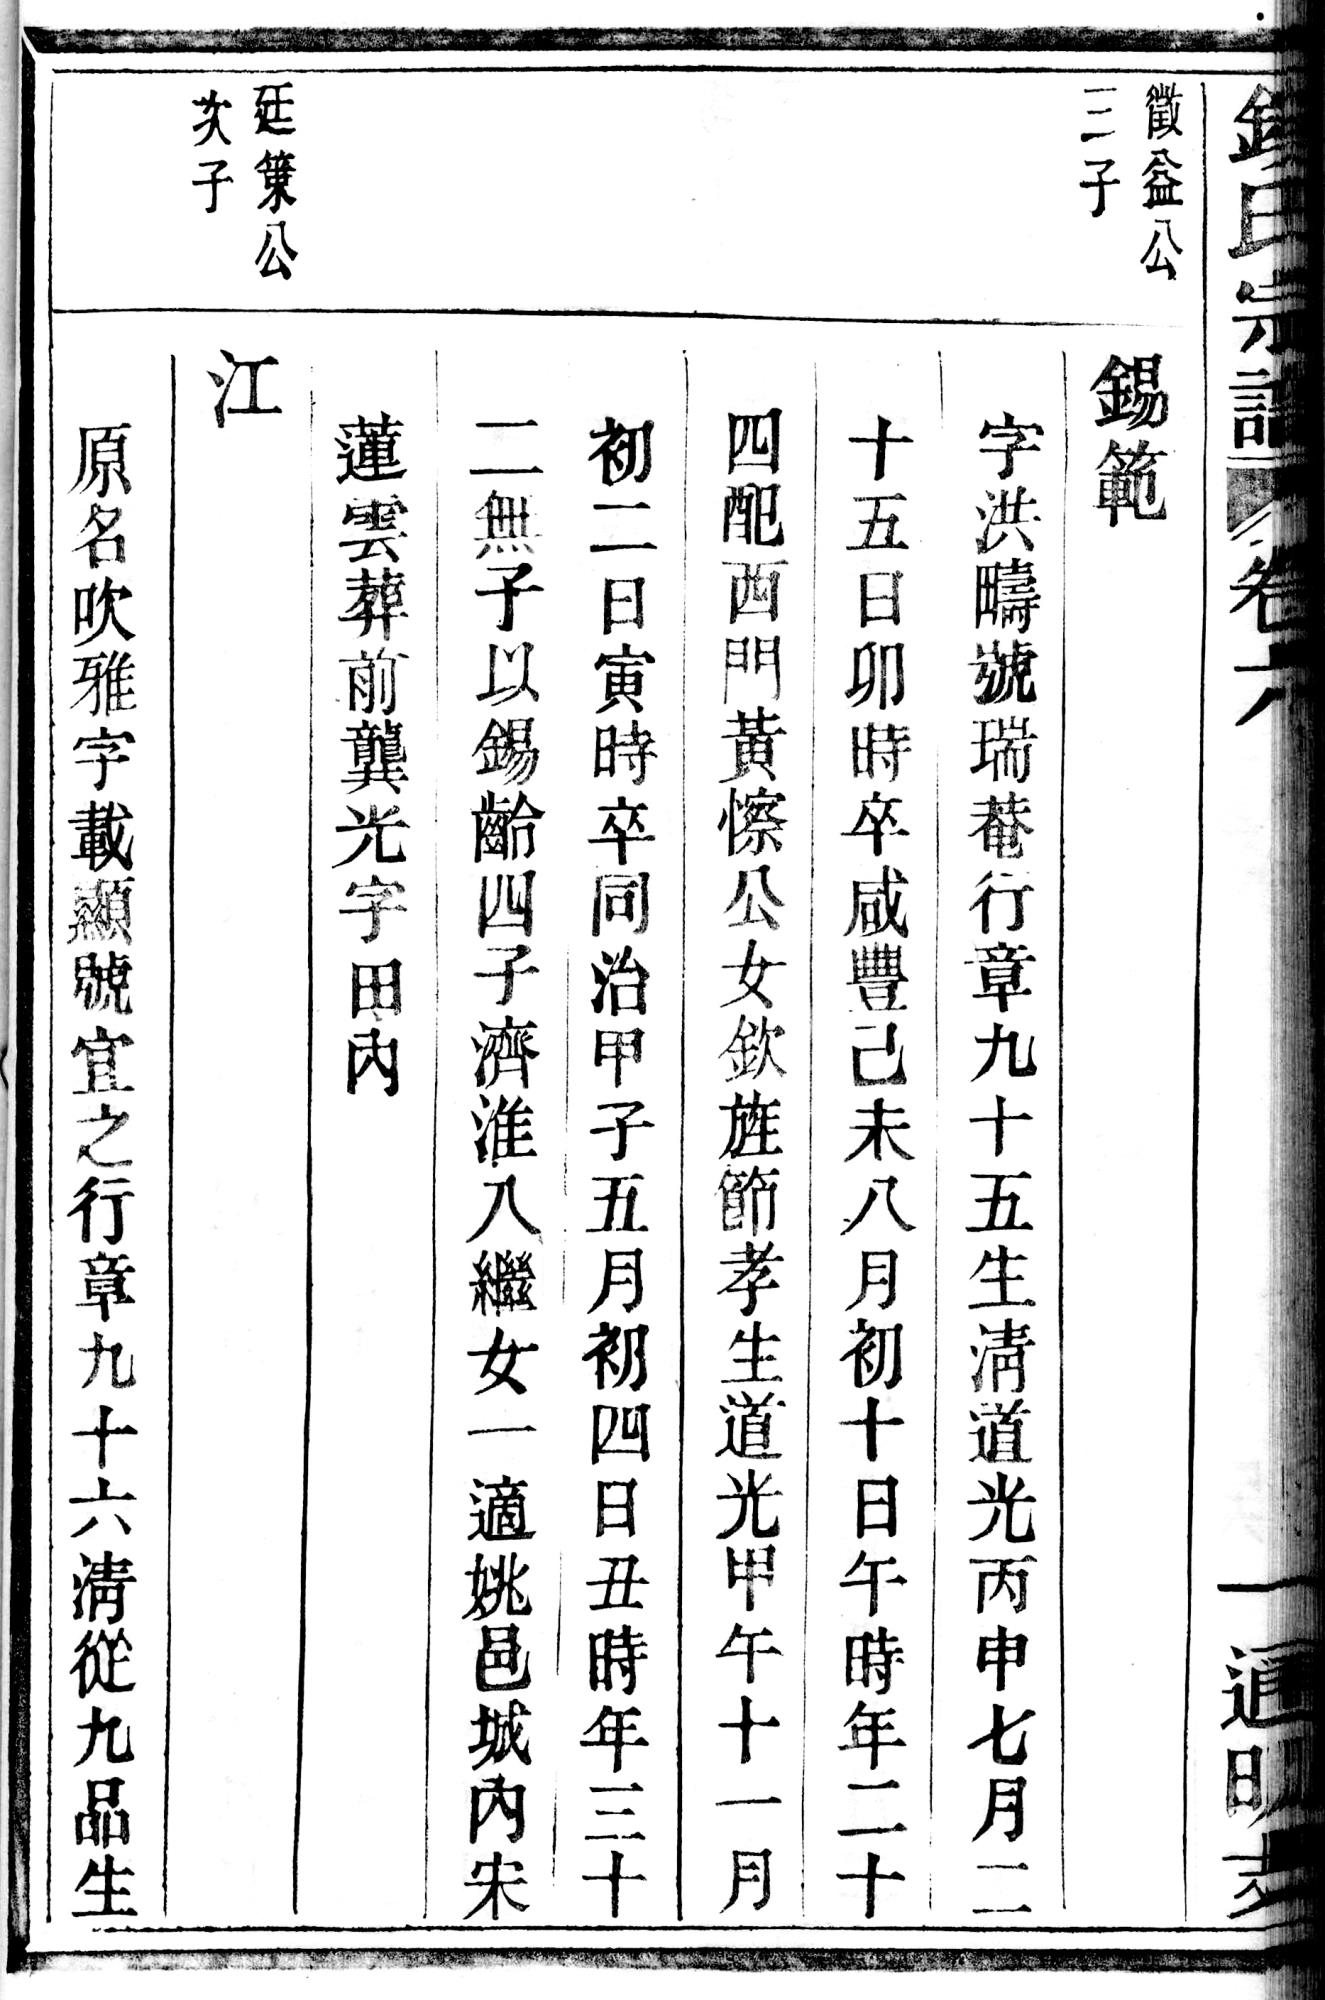 錢氏宗譜 卷六 一 通明支
徵益公
三子
錫範
字洪疇號瑞菴行章九十五生清道光丙申七月二
十五日卯時卒咸豐己未八月初十日午時年二十
四配西門黃憏公女欽旌節孝生道光甲午十一月
初二日寅時卒同治甲子五月初四日丑時年三十
二無子以錫齡四子濟淮入繼女一適姚邑城內宋
蓮雲葬前龔光字田內
廷策公
次子
江
原名吹雅字載顯號宜之行章九十六清從九品生